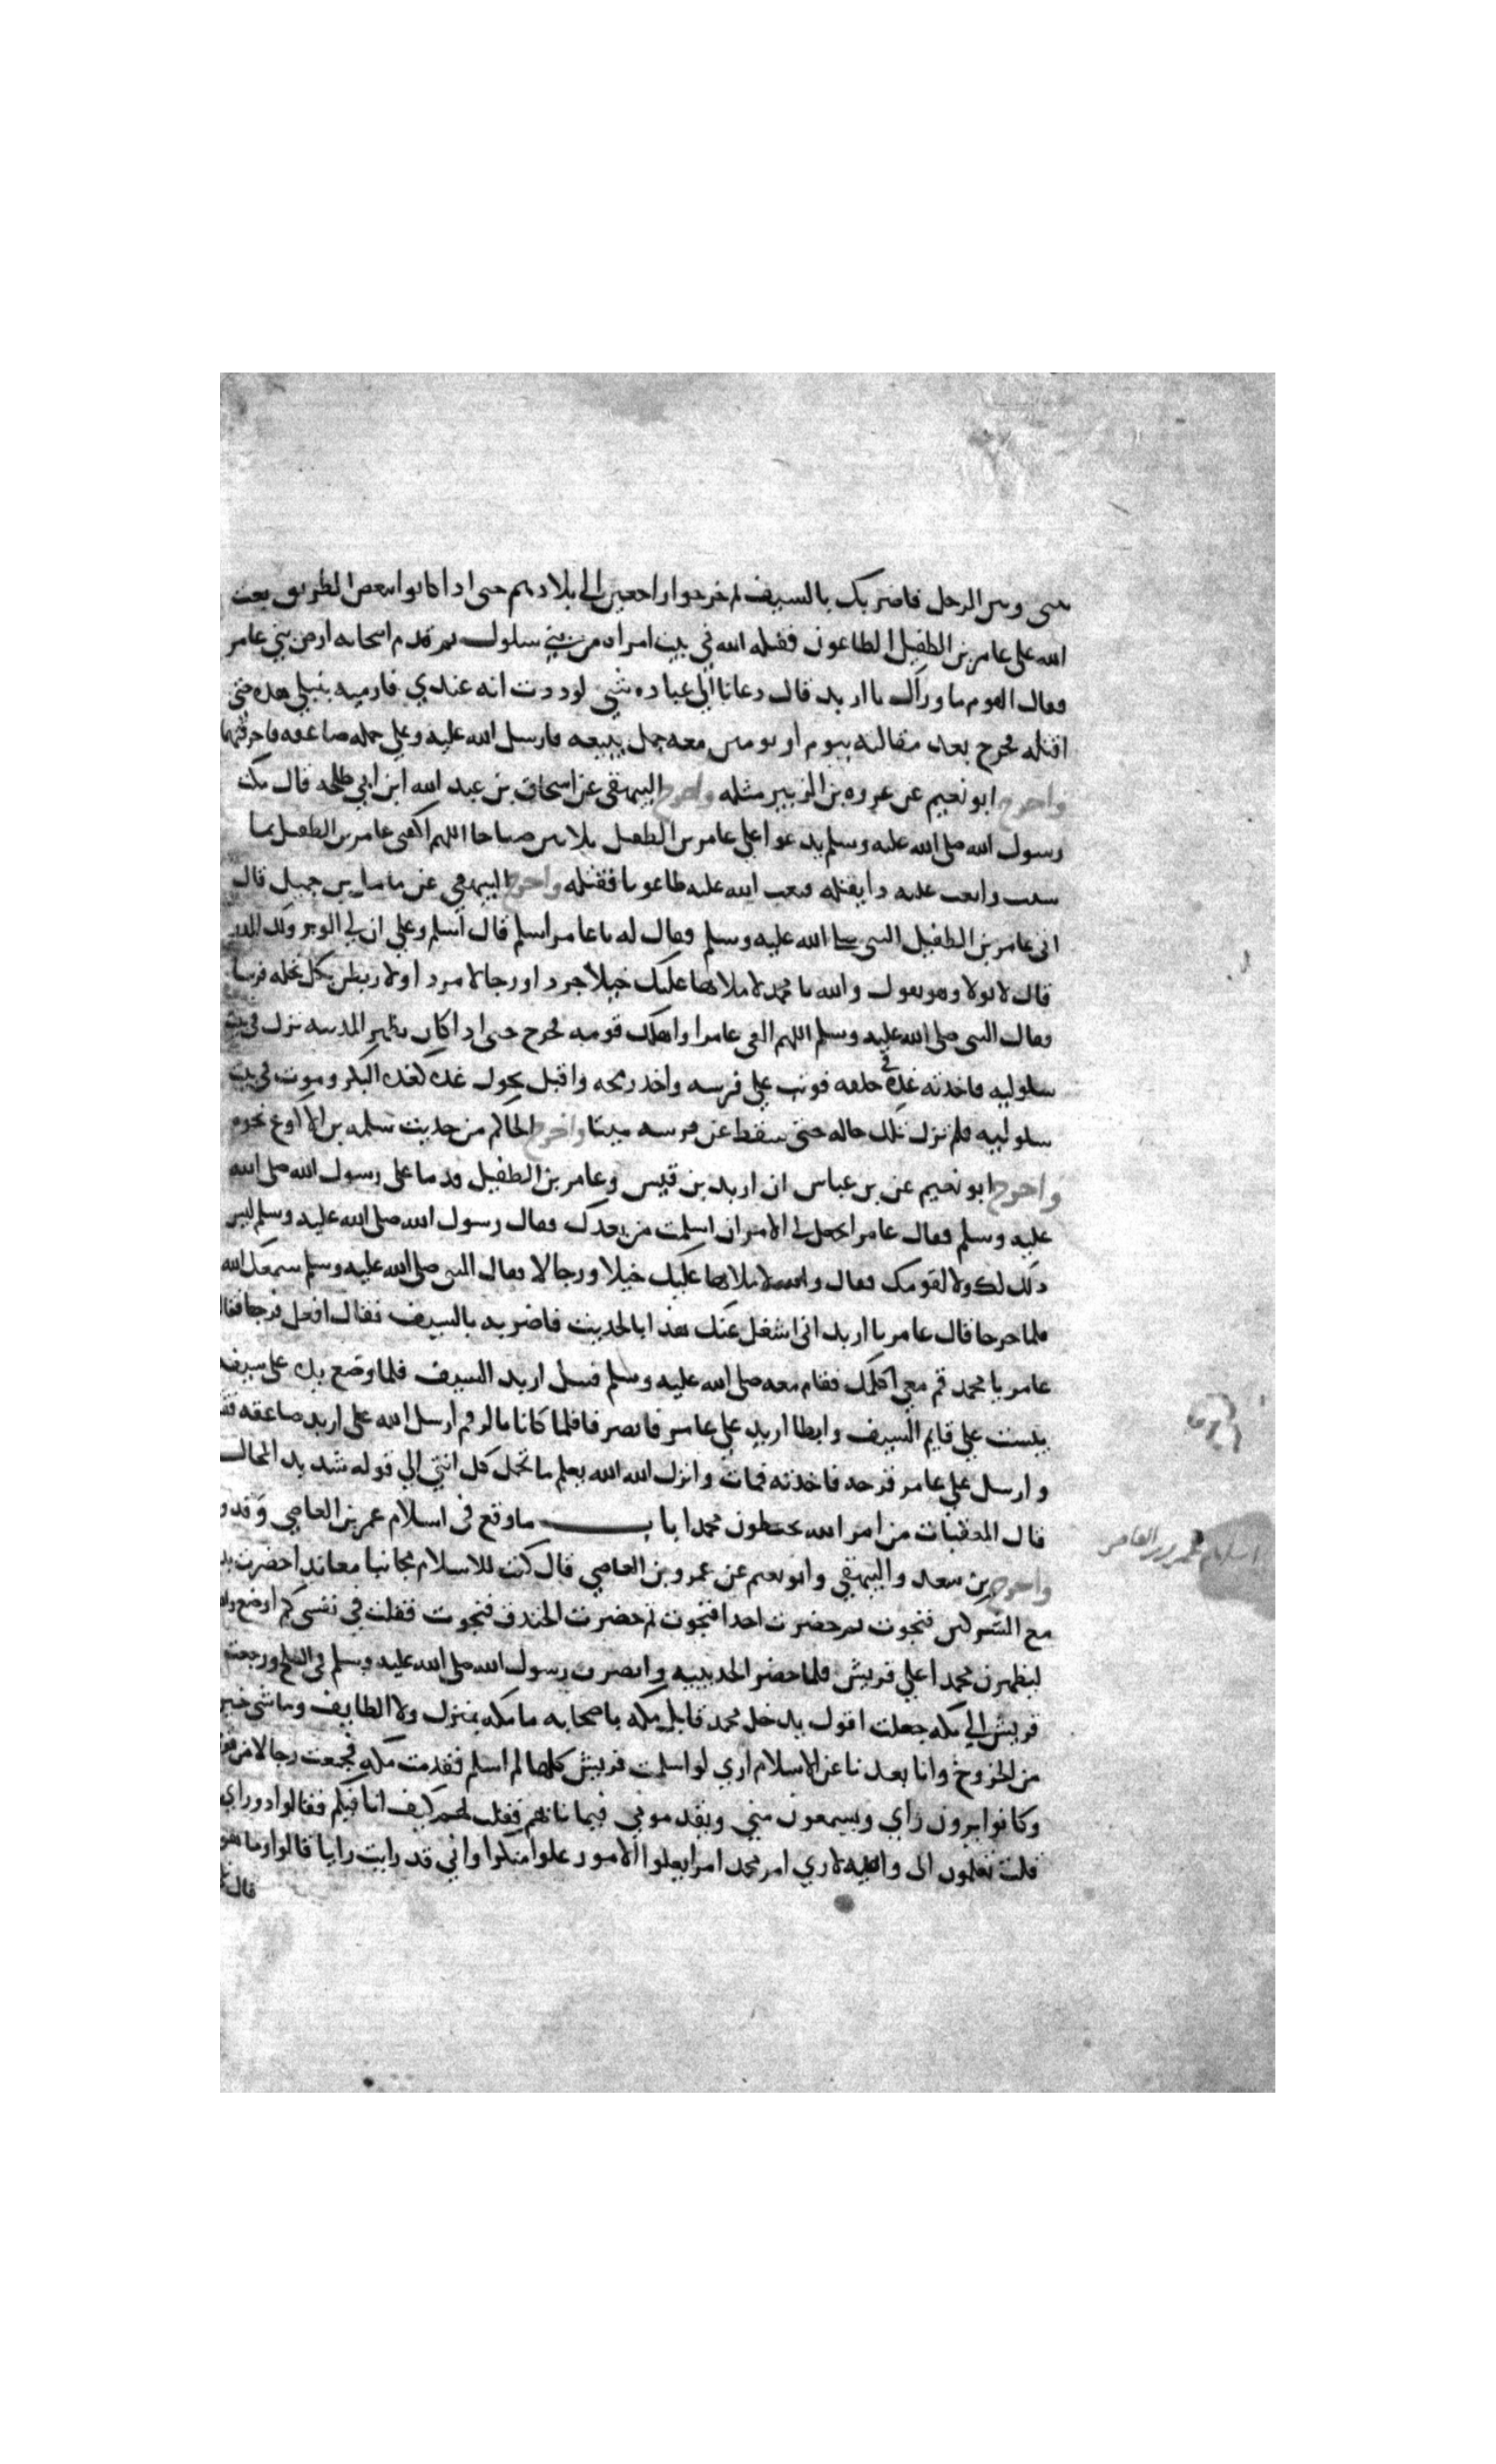 بينى وبين الرجل فاضربك بالسيف ثم خرجوا راجعين الى بلادهم حتى اذا كانوا ببعض الطريق بعث
الله على عامر بن الطفيل الطاعون فقتله الله في بيت امراه من بني سلول ثم قدم اصحابه ارض بني عامر
فقال القوم ما وراك يا اربد قال دعانا الى عباده شي لوددت انه عندي فارميه بنبلي هذه حتى
اقتله فخرج بعد مقالته بيوم او يومين معه جمل يبيعه فارسل الله عليه وعلى جمله صاعقه فاحرقتهما
واخرج ابو نعيم عن عروه بن الزبير مثله واخرج البيهقي عن اسحاق بن عبد الله ابن ابي طلحه قال مكث
رسول الله صلى الله عليه وسلم يدعوا على عامر بن الطفيل ثلاثين صباحا اللهم اكفنى عامر بن الطفيل بما
شيت وابعث عليه دا يقتله فبعث الله عليه طاعونا فقتله واخرج البيهقي عن جميل قال
اتى عامر بن الطفيل النبي صلى الله عليه وسلم فقال له يا عامر اسلم قال اسلم وعلى ان لي الوبر ولك المدر
قال لا يولا وهو يقول والله يا محمد لاملانها عليك خيلا جردا ورجالا مردا ولاربطن بكل نخله فرسا
فقال النبي صلى الله عليه وسلم اللهم اكفنى عامرا واهلك قومه فخرج حتى اذا كان بظهر المدينه نزل في بيت
سلوليه فاخذته غده في حلقه فوثب على فرسه واخذ رمحه واقبل يجول غده كغده البكر وموت في بيت
سلوليه فلم تزل تلك حاله حتى سقط عن فرسه ميتا واخرج الحاكم من حديث سلمه بن الاكوع نحوه
واخرج ابو نعيم عن بن عباس ان اربد بن قيس وعامر بن الطفيل قدما على رسول الله صلى الله
عليه وسلم فقال عامر اتجعل لي الامر ان اسلمت من بعدك فقال رسول الله صلى الله عليه وسلم ليس
ذلك لك ولا لقومك فقال والله لاملانها عليك خيلا ورجالا فقال النبي صلى الله عليه وسلم يمنعك الله
فلما خرجا قال عامر يا اربد انى اشغل عنك محمدا بالحديث فاضربه بالسيف فقال افعل فرجعا فقال
عامر يا محمد قم معي اكلمك فقام معه صلى الله عليه وسلم فسل اربد السيف فلما وضع يده على سيفه
يبست على قايم السيف وابطا اربد على عامر فانصرفا فلما كانا بالرقم ارسل الله على اربد صاعقه فقتلته
وارسل على عامر قرحه فاخذته فمات وانزل الله الله يعلم ما تحمل كل انثى الى قوله شديد المحال
قال المعقبات من امر الله يحفظون محمدا باب ما وقع فى اسلام عمر بن العاصي وقدو
واخرج بن سعد والبيهقي وابو نعيم عن عمرو بن العاصي قال كنت للاسلام مجانبا معاندا حضرت بدرا
مع المشركين فنجوت ثم حضرت احدا فنجوت ثم حضرت الخندق فنجوت فقلت في نفسي كم اوضع والله
ليظهرن محمدا على قريش فلما حضر الحديبيه وانصرف رسول الله صلى الله عليه وسلم في الصلح ورجعت
قريش الى مكه جعلت اقول يدخل محمد قابل مكه باصحابه ما مكه بمنزل ولا الطايف وما شي خير
من الخروج وانا بعد ناء عن الاسلام اري لو اسلمت قريش كلها لم اسلم فقدمت مكه فجمعت رجالا من قومي
وكانوا يرون راي ويسمعون مني ويقدموني فيما نابهم فقلت لهم كيف انا فيكم فقالوا ذوراي
قلت تعلمون انى والله لاري امر محمد امرا يعلوا الامور علوا منكرا واني قد رايت رايا قالوا وما هو
قال
اسلام عمرو بن العاص